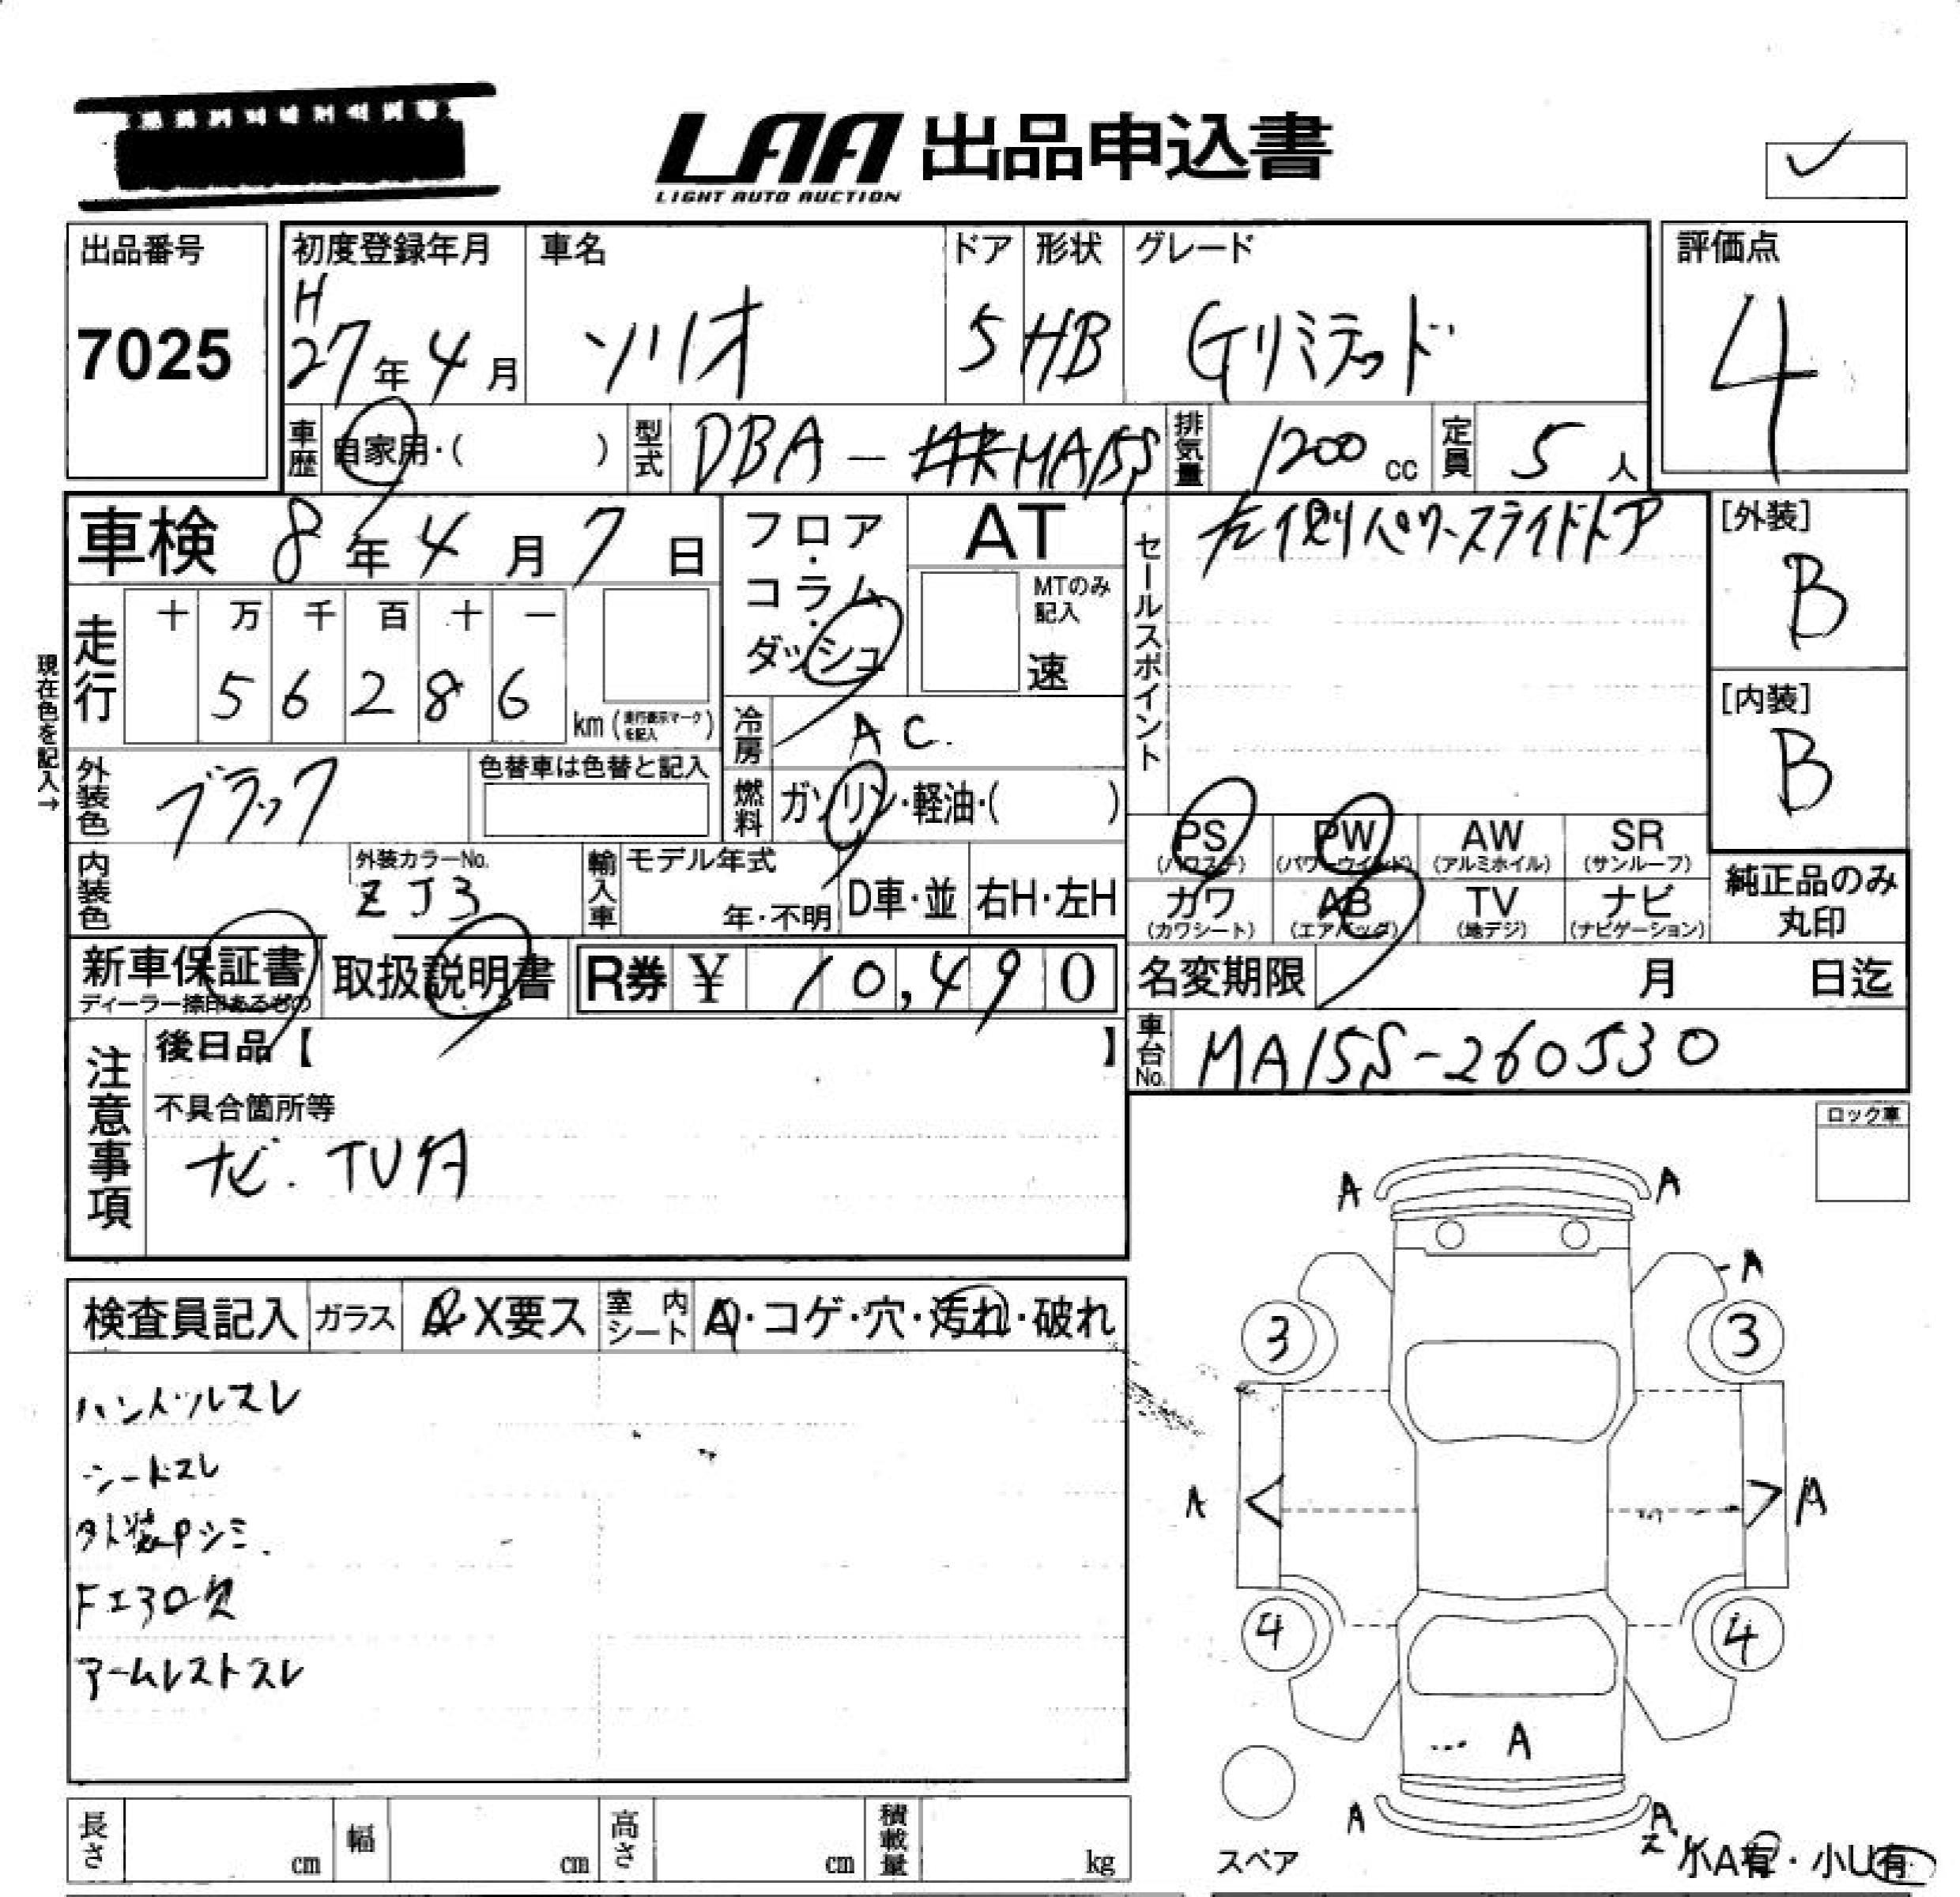 LAA 出品申込書
LIGHT AUTO AUCTION
出品番号
7025
初度登録年月
H
27年 4月
車名
ソリオ
ドア
5
形状
HB
グレード
Gリミテッド
評価点
4
車歴 自家用・( )
型式 DBA-MA15S
排気量 1200 cc
定員 5 人
車検 8年 4月 7日
フロア・コラム・ダッシュ
AT
MTのみ記入
速
セールスポイント
左側パワースライドドア
[外装]
B
[内装]
B
現在色を記入→
走行
十 万 千 百 十 一
5 6 2 8 6
km (走行表示マークを記入)
冷房 AC.
外装色 ブラック
色替車は色替と記入
燃料 ガソリン・軽油・( )
PS (パワステ)
PW (パワーウインド)
AW (アルミホイル)
SR (サンルーフ)
カワ (カワシート)
AB (エアバッグ)
TV (地デジ)
ナビ (ナビゲーション)
純正品のみ丸印
内装色
外装カラーNo.
ZJ3
輸入車
モデル年式
年・不明
D車・並
右H・左H
新車保証書
ディーラー捺印あるもの
取扱説明書
R券 ¥ 10,490
名変期限 月 日迄
車台No. MA15S-260530
注意事項
後日品【 】
不具合箇所等
ナビ.TV付
ロック車
検査員記入
ガラス A・X要ス
室内シート A・コゲ・穴・汚れ・破れ
ハンドルスレ
シートスレ
外装中シミ.
Fエプロ欠
アームレストスレ
A A
A
3 3
A A
4 4
A
A A
スペア
小A有・小U有
長さ cm
幅 cm
高さ cm
積載量 kg